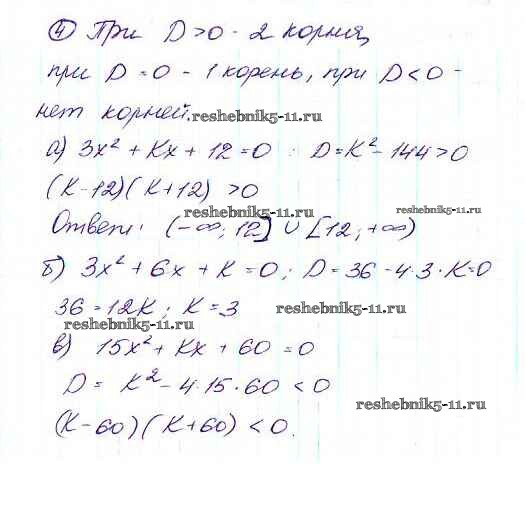 ④ При D>0 - 2 корня,
при D=0 - 1 корень, при D<0 -
нет корней.
reshebnik5-11.ru
а) 3x² + Kx + 12 = 0 : D = K² - 144 > 0
(K-12)(K+12) > 0
reshebnik5-11.ru
reshebnik5-11.ru
Ответ: (-∞; 12] ∪ [12; +∞)
б) 3x² + 6x + K = 0; D = 36 - 4·3·K = 0
36 = 12K; K = 3
reshebnik5-11.ru
reshebnik5-11.ru
в) 15x² + Kx + 60 = 0
D = K² - 4·15·60 < 0
reshebnik5-11.ru
(K-60)(K+60) < 0.